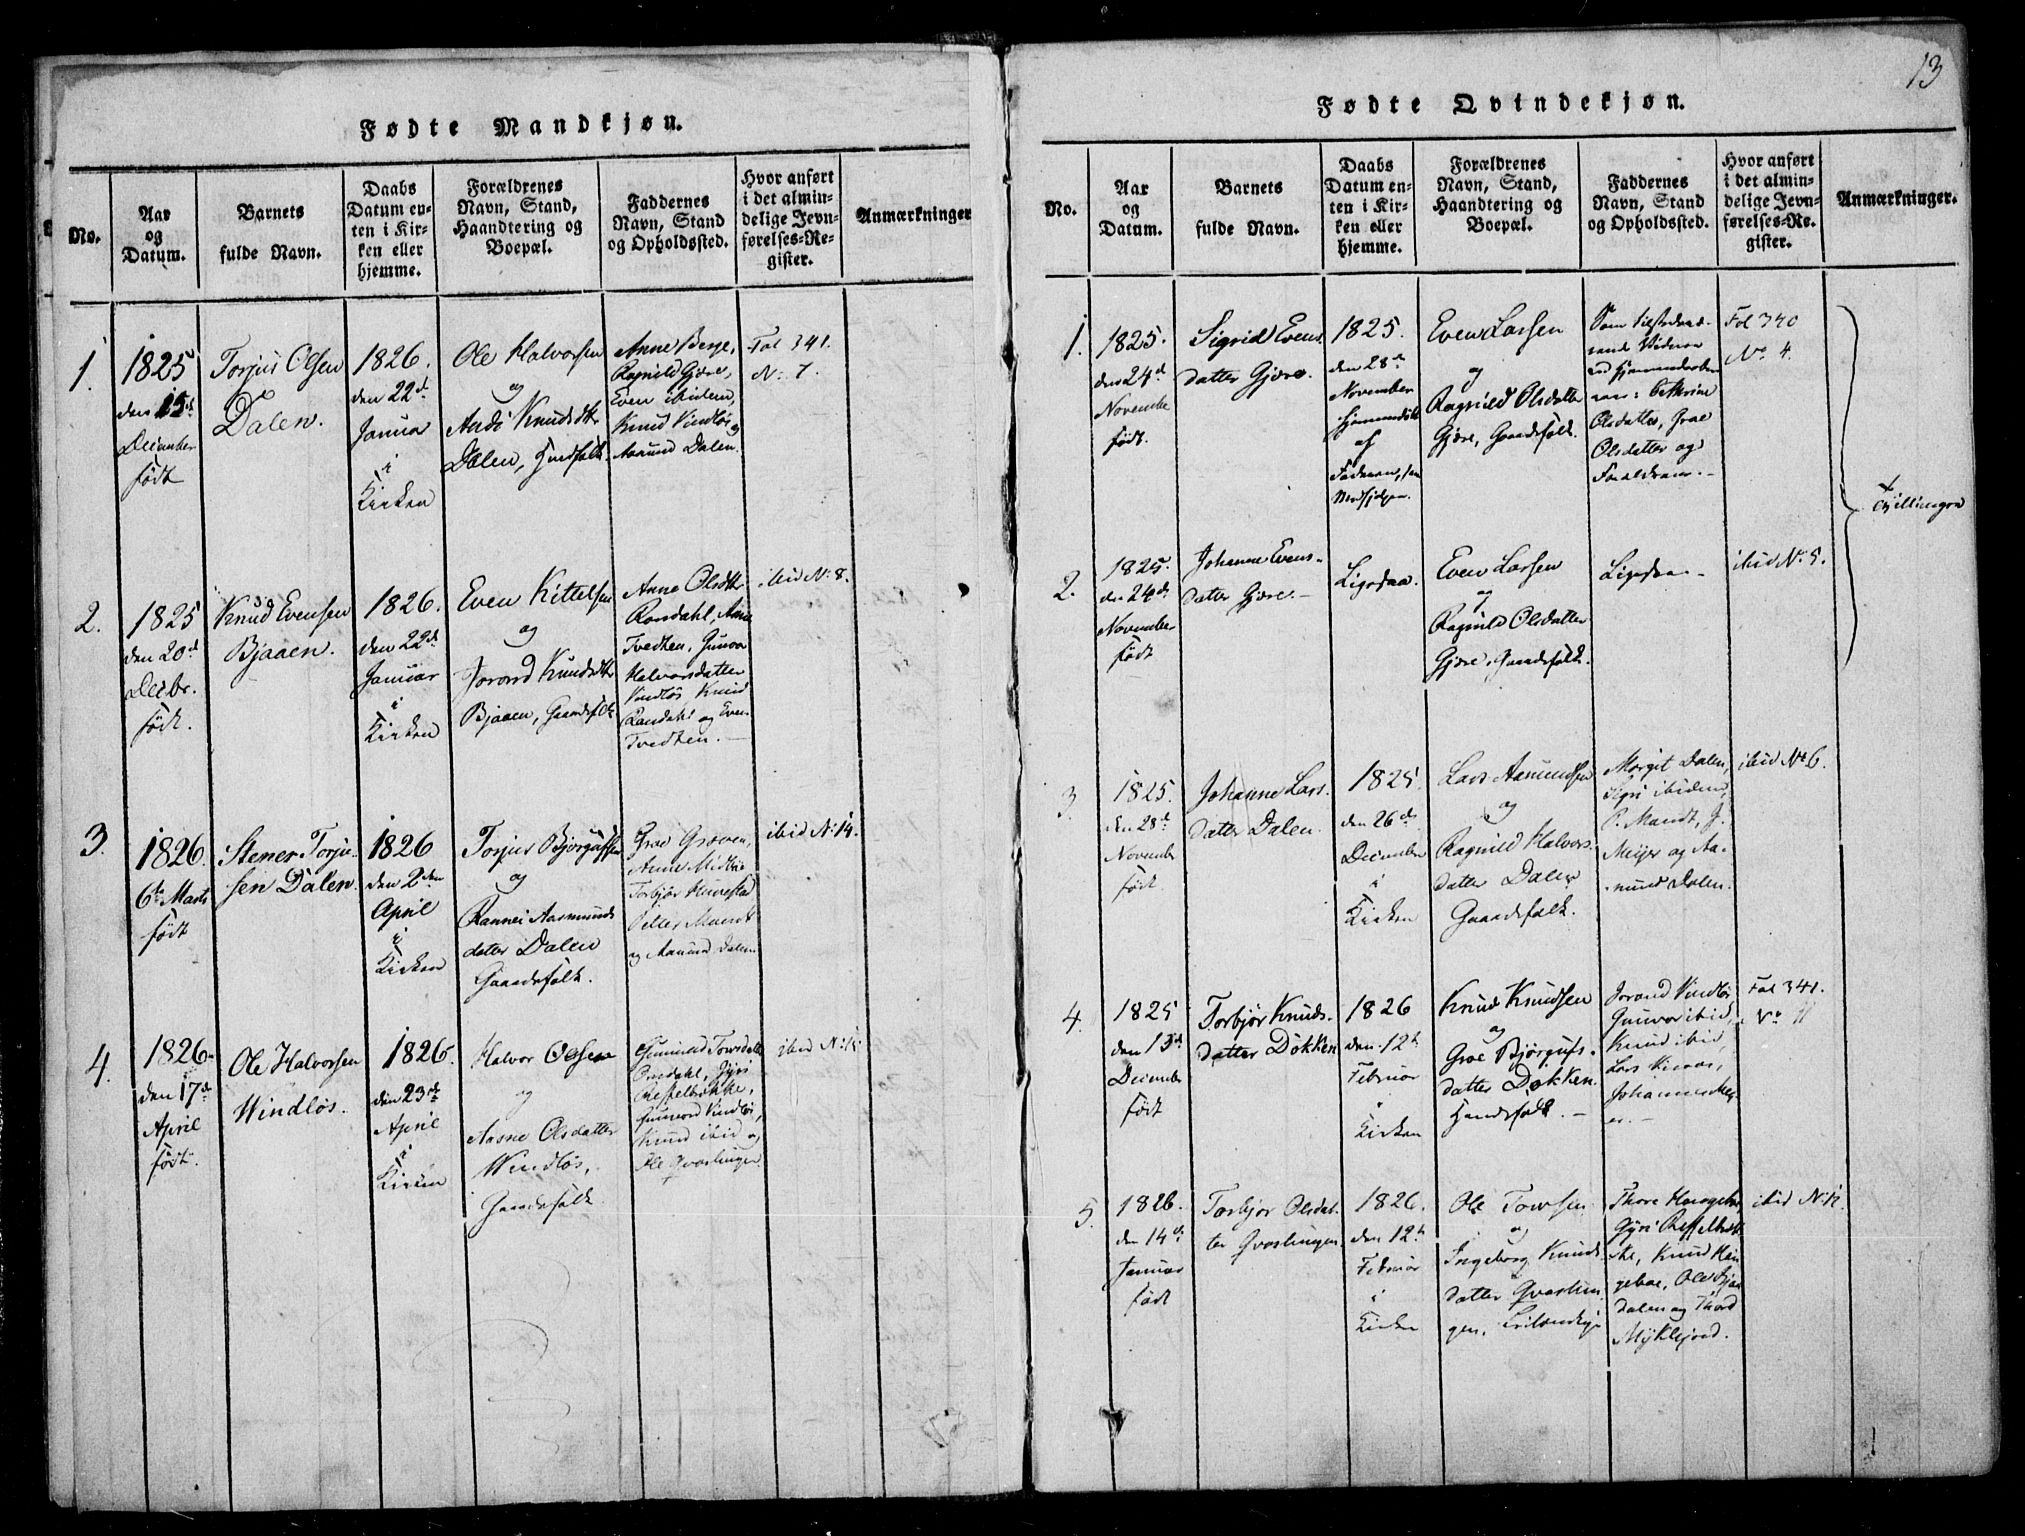 Fødte Mandkjøn.
No.
Aar
og
Datum.
Barnets
fulde Navn.
Daabs
Datum en-
ten i Kir-
ken eller
hjemme.
Forældrenes
Navn, Stand,
Haandtering og
Boepæl.
Faddernes
Navn, Stand
og Opholdssted.
Hvor anført
i det almin-
delige Jevn-
førelses-Re-
gister.
Anmærkninger
1.
1825
den 15d
December
født
Torjus Olsen
Dalen.
1826.
den 22d
Januar
i
Kirken
Ole Halvorsen
og
Knudsdtr
Dalen,
Anne Berge,
Ragnild Gjøre,
Even ibidem,
Knud Vindløs og
Aamund Dalen.
Fol 341.
No. 7.
2.
1825
den 20d
Decbr.
født.
Knud Evensen
Bjaaen.
1826.
den 22d
Januar
i
Kirken
Even Kittelsen
og
Jorond Knudsdtr
Bjaaen, Gaardsfolk
Anne Olsdtr
Rondahl, Anne
Tvedten, Gunvor
Halvorsdatter
Vindløs Knud
Rondahl og Even
Tvedten.—
ibid No. 8.
3.
1826.
6te Marts
født
Stener Torju-
sen Dalen.
1826
den 2den
April
i
Kirken
Torjus Bjørgufsen
og
Rannei Aasmunds
datter Dalen
Gaardsfolk.
Groe Groven,
Anne
Torbjør
Petter Mandt
og Aamund Dalen
ibid No. 14.
4.
1826.
den 17de
April
født.
Ole Halvorsen
Windløs.
1826.
den 23de
April
i
Kirken
Halvor Olsen
og
Aasne Olsdatter
Windløs,
Gaardsfolk.
Gunvord Vindløs,
Knud ibid og
Ole Qvastingen.
ibid
13
Fødte Qvindekjøn.
No.
Aar
og
Datum.
Barnets
fulde Navn.
Daabs
Datum en-
ten i Kir-
ken eller
hjemme.
Forældrenes
Navn, Stand,
Haandtering og
Boepæl.
Faddernes
Navn, Stand
og Opholdssted.
Hvor anført
i det almin-
delige Jevn-
førelses-Re-
gister.
Anmærkninger.
1.
1825.
den 24d
November
født.
Sigrid Evens
datter Gjøre.
1825.
den 28de
November
hjemmedøbt
af
Faderen,
Even Larsen
og
Ragnild Olsdatter
Gjøre, Gaardsfolk.
Som
Olsdatter, Groe
Olsdatter og
Forældrene.—
Fol 340
No. 4.
Tvillinger
2.
1825.
den 24de
November
født
Johanne Evens-
datter Gjøre.—
Ligesaa.
Even Larsen
og
Ragnild Olsdatter
Gjøre, Gaardsfolk.
Ligesaa—
ibid No. 5.
3.
1825.
den 28d
November
født.
Johanne Lars
datter Dalen.
1825.
den 26de
December
i
Kirken
Lars Aamundsen
og
Ragnild Halvors-
datter Dalen
Gaardsfolk.
Margit Dalen,
Sigri ibidem,
P. Mandt, J.
Meijer og Aa-
mund Dalen.
ibid No 6.
4.
1825
den 13d
December
født
Torbjør Knuds-
datter Dokken
1826
den 12te
Februar
i
Kirken
Knud Knudsen
og
Groe Bjørgufs-
datter Dokken
Huusfolk.—
Jorond Vindløs
Gunvor ibid,
Knud ibid,
Lars
Johannes Mey-
er.—
Fol 341.
No 11
5.
1826.
den 14de
Januar
født
Torbjør Olsdat-
ter Qvastingen.
1826.
den 12te
Februar
i
Kirken
Ole Torsen
og
Ingeborg Knuds-
datter Qvastin-
gen,
Thore
Gyri
Knud
Ole
dalen og Thord
ibid